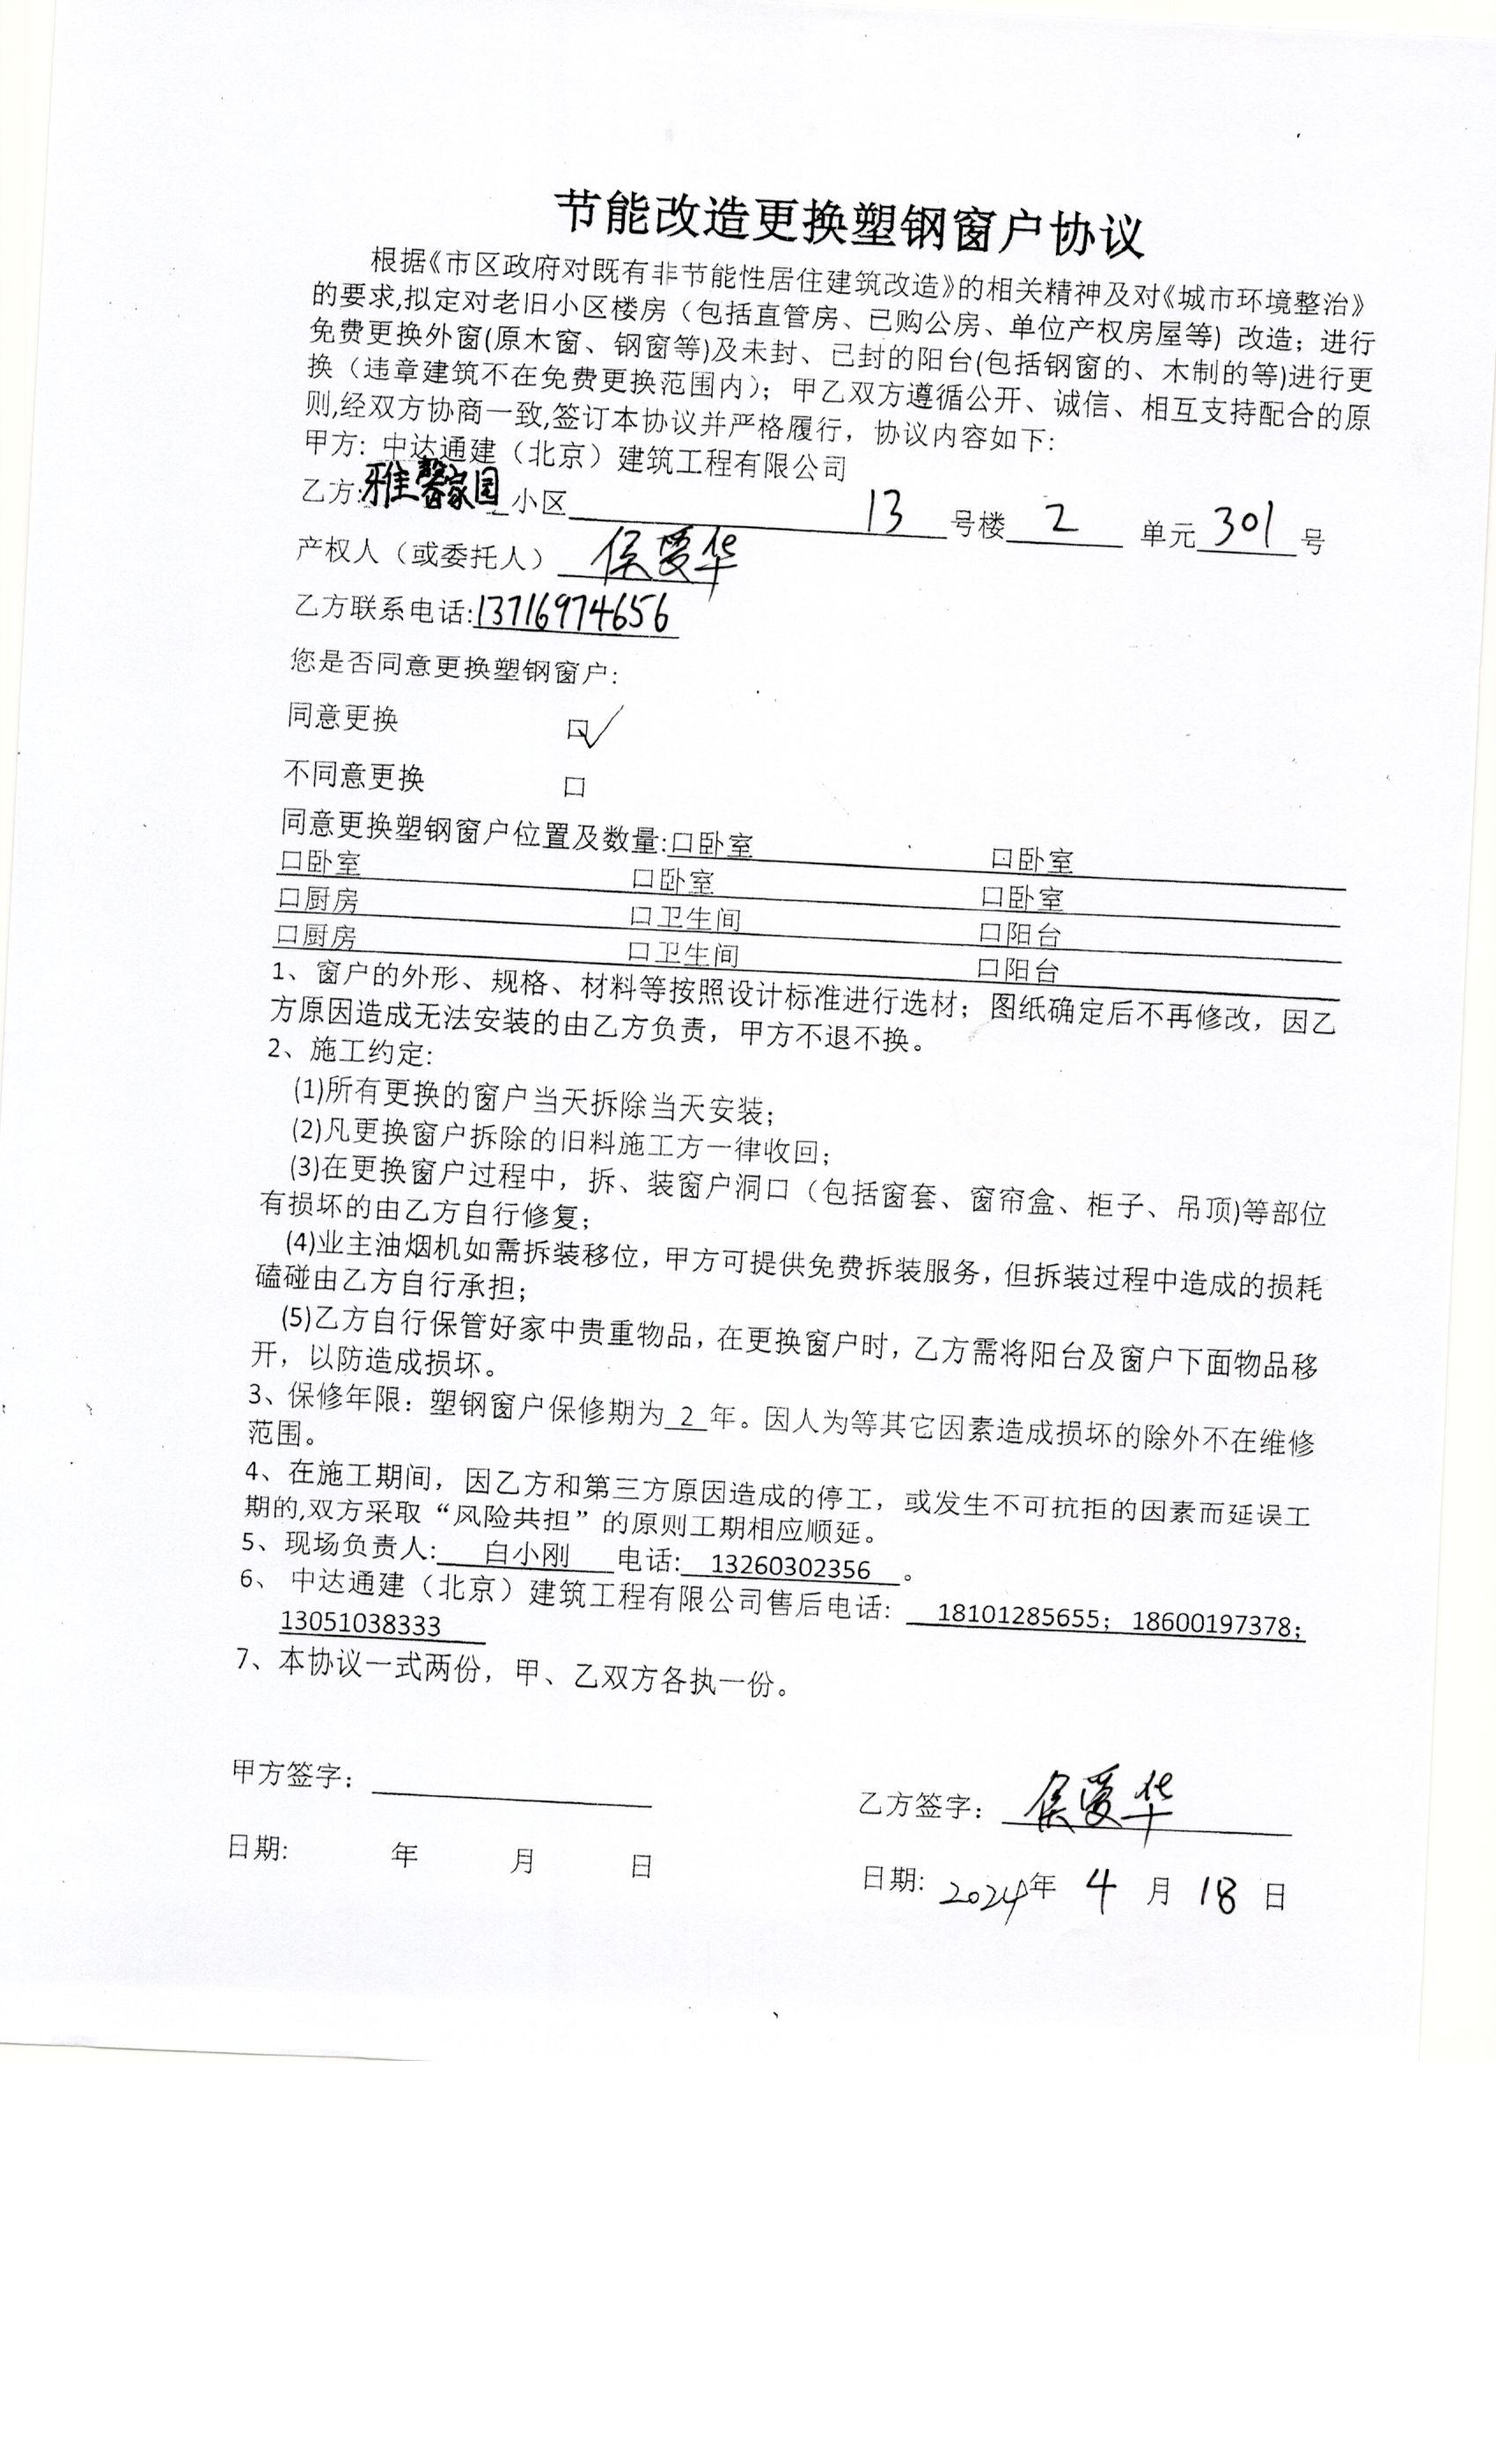 节能改造更换塑钢窗户协议
根据《市区政府对既有非节能性居住建筑改造》的相关精神及对《城市环境整治》
的要求,拟定对老旧小区楼房（包括直管房、已购公房、单位产权房屋等）改造；进行
免费更换外窗(原木窗、钢窗等)及未封、已封的阳台(包括钢窗的、木制的等)进行更
换（违章建筑不在免费更换范围内）；甲乙双方遵循公开、诚信、相互支持配合的原
则,经双方协商一致,签订本协议并严格履行，协议内容如下：
甲方: 中达通建（北京）建筑工程有限公司
乙方:雅馨家园 小区 13 号楼 2 单元 301 号
产权人（或委托人） 侯爱华
乙方联系电话:13716974656
您是否同意更换塑钢窗户:
同意更换 口√
不同意更换 口
同意更换塑钢窗户位置及数量:口卧室 口卧室
口卧室 口卧室 口卧室
口厨房 口卫生间 口阳台
口厨房 口卫生间 口阳台
1、窗户的外形、规格、材料等按照设计标准进行选材；图纸确定后不再修改，因乙
方原因造成无法安装的由乙方负责，甲方不退不换。
2、施工约定:
(1)所有更换的窗户当天拆除当天安装；
(2)凡更换窗户拆除的旧料施工方一律收回；
(3)在更换窗户过程中，拆、装窗户洞口（包括窗套、窗帘盒、柜子、吊顶)等部位
有损坏的由乙方自行修复；
(4)业主油烟机如需拆装移位，甲方可提供免费拆装服务，但拆装过程中造成的损耗
磕碰由乙方自行承担；
(5)乙方自行保管好家中贵重物品，在更换窗户时，乙方需将阳台及窗户下面物品移
开，以防造成损坏。
3、保修年限：塑钢窗户保修期为 2 年。因人为等其它因素造成损坏的除外不在维修
范围。
4、在施工期间，因乙方和第三方原因造成的停工，或发生不可抗拒的因素而延误工
期的,双方采取“风险共担”的原则工期相应顺延。
5、现场负责人: 白小刚 电话: 13260302356 。
6、 中达通建（北京）建筑工程有限公司售后电话: 18101285655；18600197378；
13051038333
7、本协议一式两份，甲、乙双方各执一份。
甲方签字： 乙方签字: 侯爱华
日期: 年 月 日 日期: 2024年 4 月 18 日